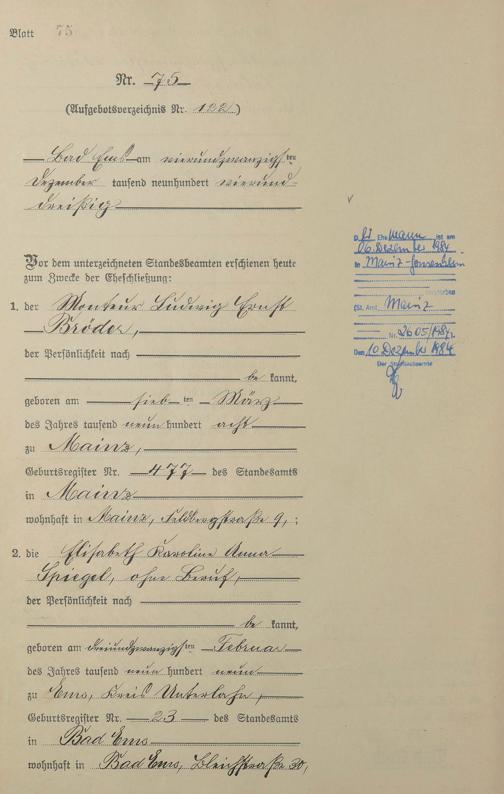 Blatt 75
Nr. 75
(Aufgebotsverzeichnis Nr. 122)
Bad Ems am vierundzwanzigsten
Dezember tausend neunhundert vierund-
dreißig
Vor dem unterzeichneten Standesbeamten erschienen heute
zum Zwecke der Eheschließung:
1. der Monteur Ludwig Ernst
Bröder,
der Persönlichkeit nach
be kannt,
geboren am sieb ten März
des Jahres tausend neun hundert acht
zu Mainz,
Geburtsregister Nr. 477 des Standesamts
in Mainz
wohnhaft in Mainz, Feldbergstraße 9, ;
2. die Elisabeth Karoline Anna
Spiegel, ohne Beruf,
der Persönlichkeit nach
be kannt,
geboren am dreiundzwanzigsten Februar
des Jahres tausend neun hundert neun
zu Ems, Kreis Unterlahn,
Geburtsregister Nr. 23 des Standesamts
in Bad Ems
wohnhaft in Bad Ems, Bleichstraße 30,
Ehemann ist am
06. Dezember 1984
in Mainz-
verstorben
(St. Amt Mainz
Nr. 2605/1984)
Den 10. Dezember 1984
Der Standesbeamte